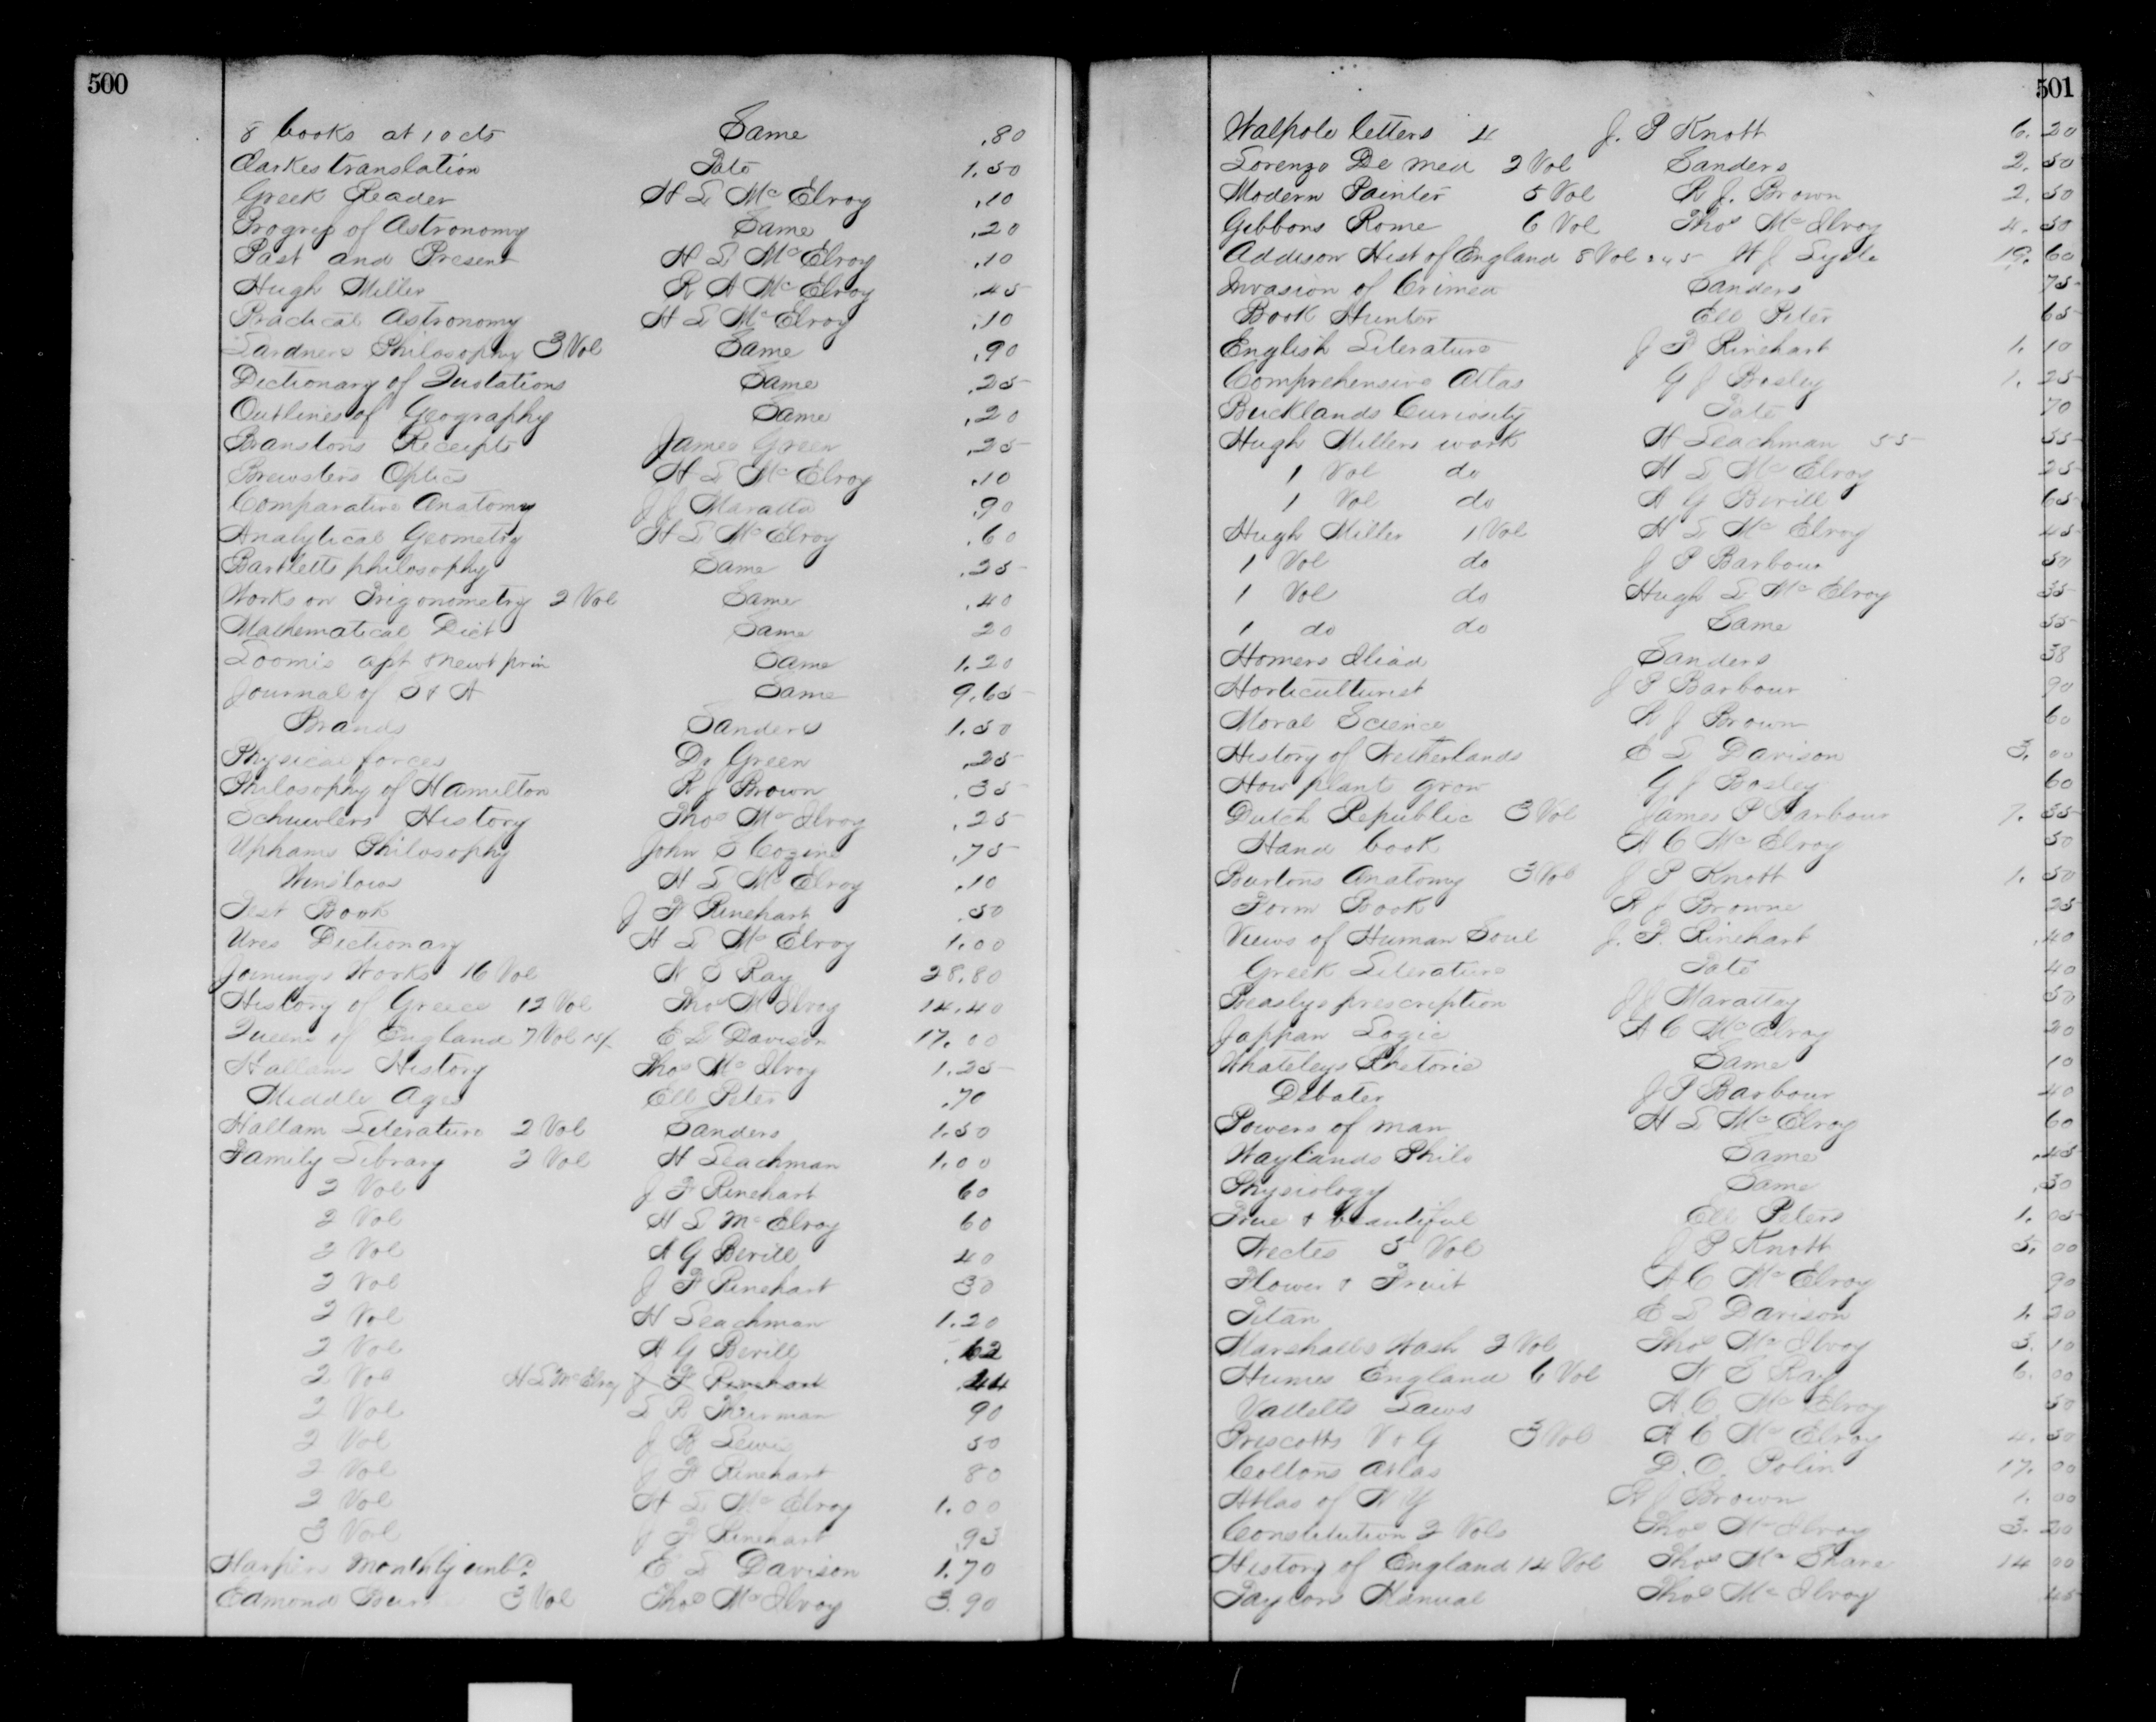 500
8 books at 10 cts Same .80
Clarkes translation Pate 1.50
Greek Reader H L McElroy .10
Progress of Astronomy Same .20
Past and Present H L McElroy .10
Hugh Miller R A McElroy .45
Practical Astronomy H L McElroy .10
Lardners Philosophy 3 Vol Same .90
Dictionary of Quotations Same .25
Outlines of Geography Same .20
Branstons Receipts James Green .25
Brewsters Optics H L McElroy .10
Comparative Anatomy J J Maratta .90
Analytical Geometry H L McElroy .60
Bartletts philosophy Same .25
Works on Trigonometry 2 Vol Same .40
Mathematical Dict Same 20
Loomis apt & newt prin Same 1.20
Journal of S & A Same 9.65
Brands Sanders 1.50
Physical forces Dr Green .25
Philosophy of Hamilton R J Brown .35
History Thos McIlroy .25
Uphams Philosophy John S Cozine .75
Winslows H L McElroy .10
Test Book J F Rinehart .50
Ures Dictionary H L McElroy 1.00
Works 16 Vol N S Ray 28.80
History of Greece 12 Vol Thos McIlroy 14.40
Queens of England 7 Vol E L Davison 17.00
Hallams History Thos McIlroy 1.25
Middle Ages Ell Peter .70
Hallam Literature 2 Vol Sanders 1.50
Family Library 2 Vol H Leachman 1.00
2 Vol J F Rinehart 60
2 Vol H L McElroy 60
2 Vol A G Berill 40
2 Vol J F Rinehart 30
2 Vol H Leachman 1.20
2 Vol A G Berill .62
2 Vol H L McElroy J F Rinehart .44
2 Vol L R Thurman 90
2 Vol J B Lewis 50
2 Vol J F Rinehart 80
2 Vol H L McElroy 1.00
3 Vol J F Rinehart .93
Harpers Monthly unbd E L Davison 1.70
Edmond 3 Vol Thos McIlroy 3.90
501
Walpole letters 4 J. P Knott 6.20
Lorenzo De med 2 Vol Sanders 2.50
Modern Painter 5 Vol R J. Brown 2.50
Gibbons Rome 6 Vol Thos McIlroy 4.50
Addison Hist of England 8 Vol 245 W J Lysle 19.60
Invasion of Crimea Sanders 75
Book Hunter Ell Peter 65
English Literature J F Rinehart 1.10
Comprehensive Atlas G J Bosley 1.25
Bucklands Curiosity Pate 70
Hugh Millers work H Leachman 55 55
1 Vol do H L McElroy 25
1 Vol do A G Berill 65
Hugh Miller 1 Vol H L McElroy 45
1 Vol do J P Barbour 50
1 Vol do Hugh L McElroy 35
1 do do Same 55
Homers Iliad Sanders 38
Horticulturist J P Barbour 90
Moral Science R J Brown 60
History of Netherlands E L Davison 3.00
How plant grow G J Bosley 60
Dutch Republic 3 Vol James P Barbour 7.35
Hand book A C McElroy 50
Burtons Anatomy 3 Vol J P Knott 1.50
Form Book R J Browne 25
Views of Human Soul J. F. Rinehart .40
Greek Literature Pate 40
Beaslys prescription J J Marattay 50
Jappan Logic A C McElroy 20
Whateleys Rhetoric Same 10
Debater J P Barbour 40
Powers of man H L McElroy 60
Waylands Philo Same .45
Physiology Same .30
True & beautiful Ell Peters 1.05
Noctes 5 Vol J P Knott 5.00
Flower & Fruit A C McElroy 90
Titan E L Davison 1.20
Marshalls Wash 2 Vol Thos McIlroy 3.10
Humes England 6 Vol N S Ray 6.00
Vattells Laws A. C. McElroy 50
Prescotts 3 Vol A C McElroy 4.50
Coltons Atlas D. O. Polin 17.00
Atlas of N Y R J Brown 1.00
Constitution 2 Vols Thos McIlroy 3.20
History of England 14 Vol Thos McShane 14 00
Taylors Manual Thos McIlroy 45